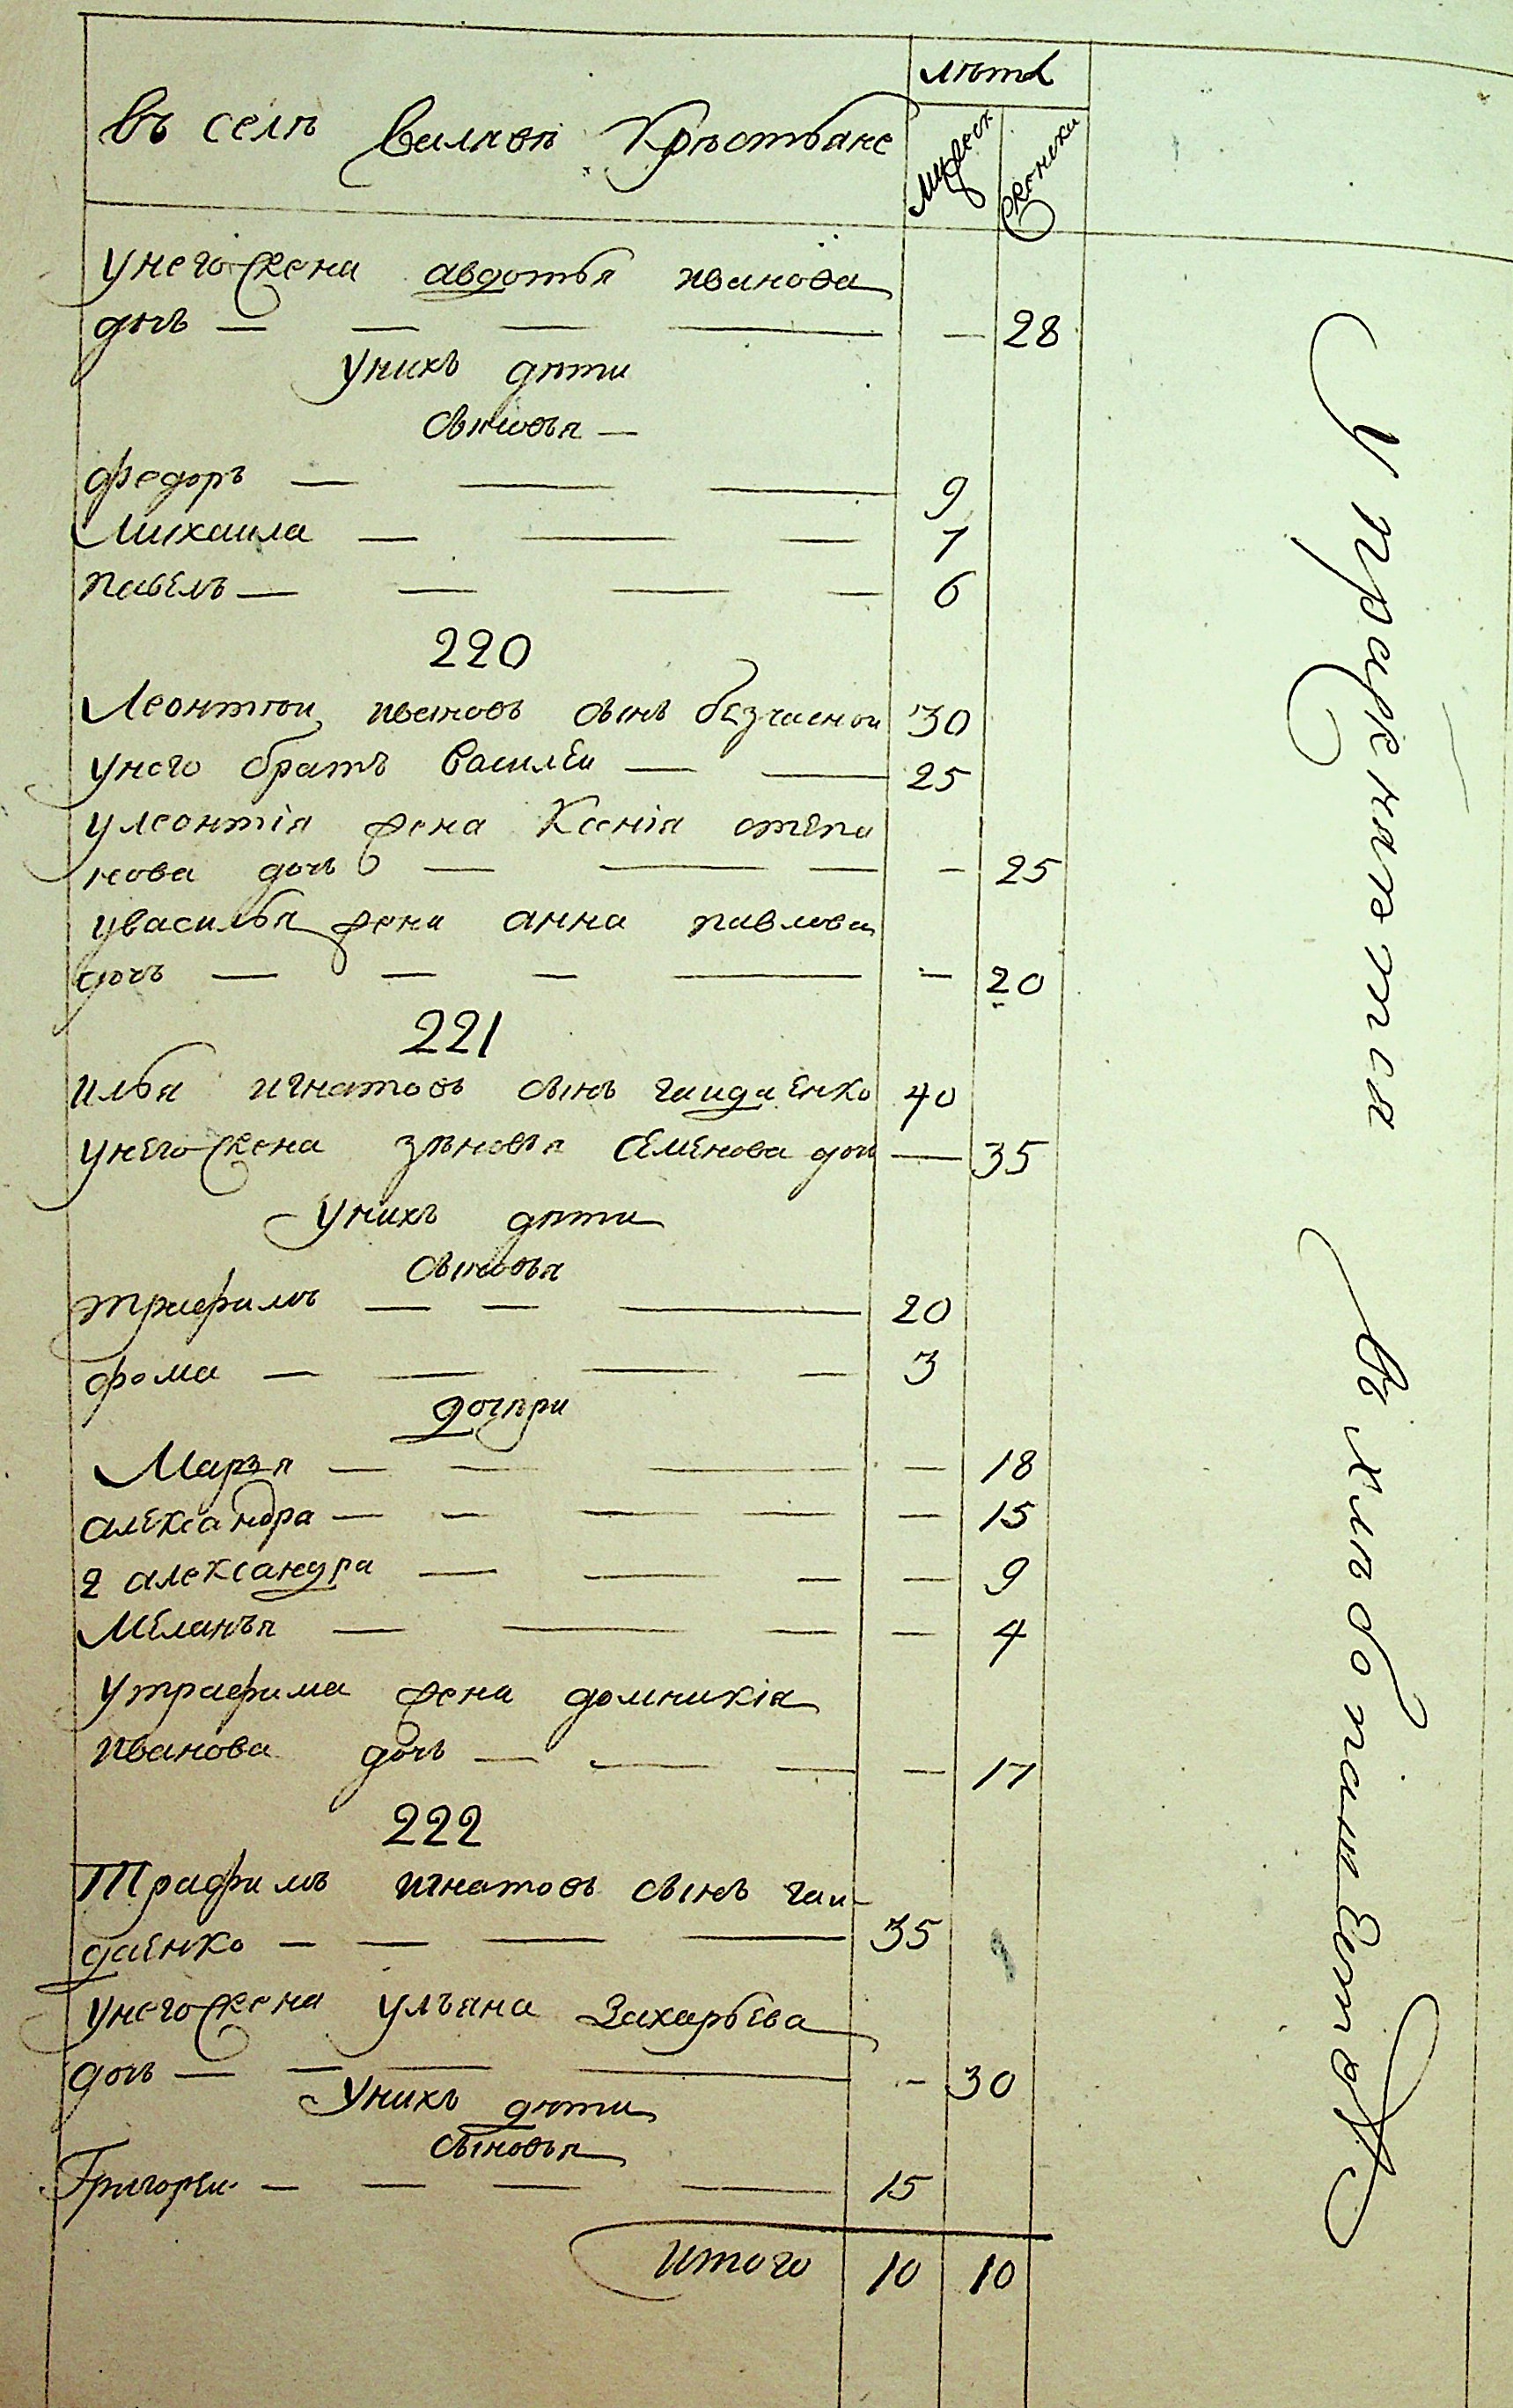 въ селѣ Вилкеѣ Крѣстьане
лѣта
мужеск
женски
унего жена авдотья иванова
дочъ — — — — — 28
унихъ дѣти
сыновья —
федоръ — — — 9
Михаила — — — 7
павелъ — — — — 6
220
Леонтеи ивановъ сынъ безчасной 30
унего братъ василеи — — 25
улеонтія жена Ксенія степа
нова дочъ — — — — 25
увасилья жена анна павлова
дочъ — — — — — 20
221
илья игнатовъ сынъ гаидаенко 40
унего жена зѣновья семенова доч — 35
унихъ дѣти
сыновья
трафимъ — — — 20
фома — — — — 3
дочѣри
Марѳя — — — — 18
александра — — — — — 15
2 александра — — — — 9
Меланья — — — — 4
утрафима жена домникія
иванова дочъ — — — — 17
222
Трафимъ игнатовъ сынъ гаи-
даенко — — — — 35
унего жена ульяна Захарьева
дочъ — — — — - 30
Унихъ дѣти
сыновья
Григореи — — — — 15
итого 10 10
упражнаетса
в хлебопашестве